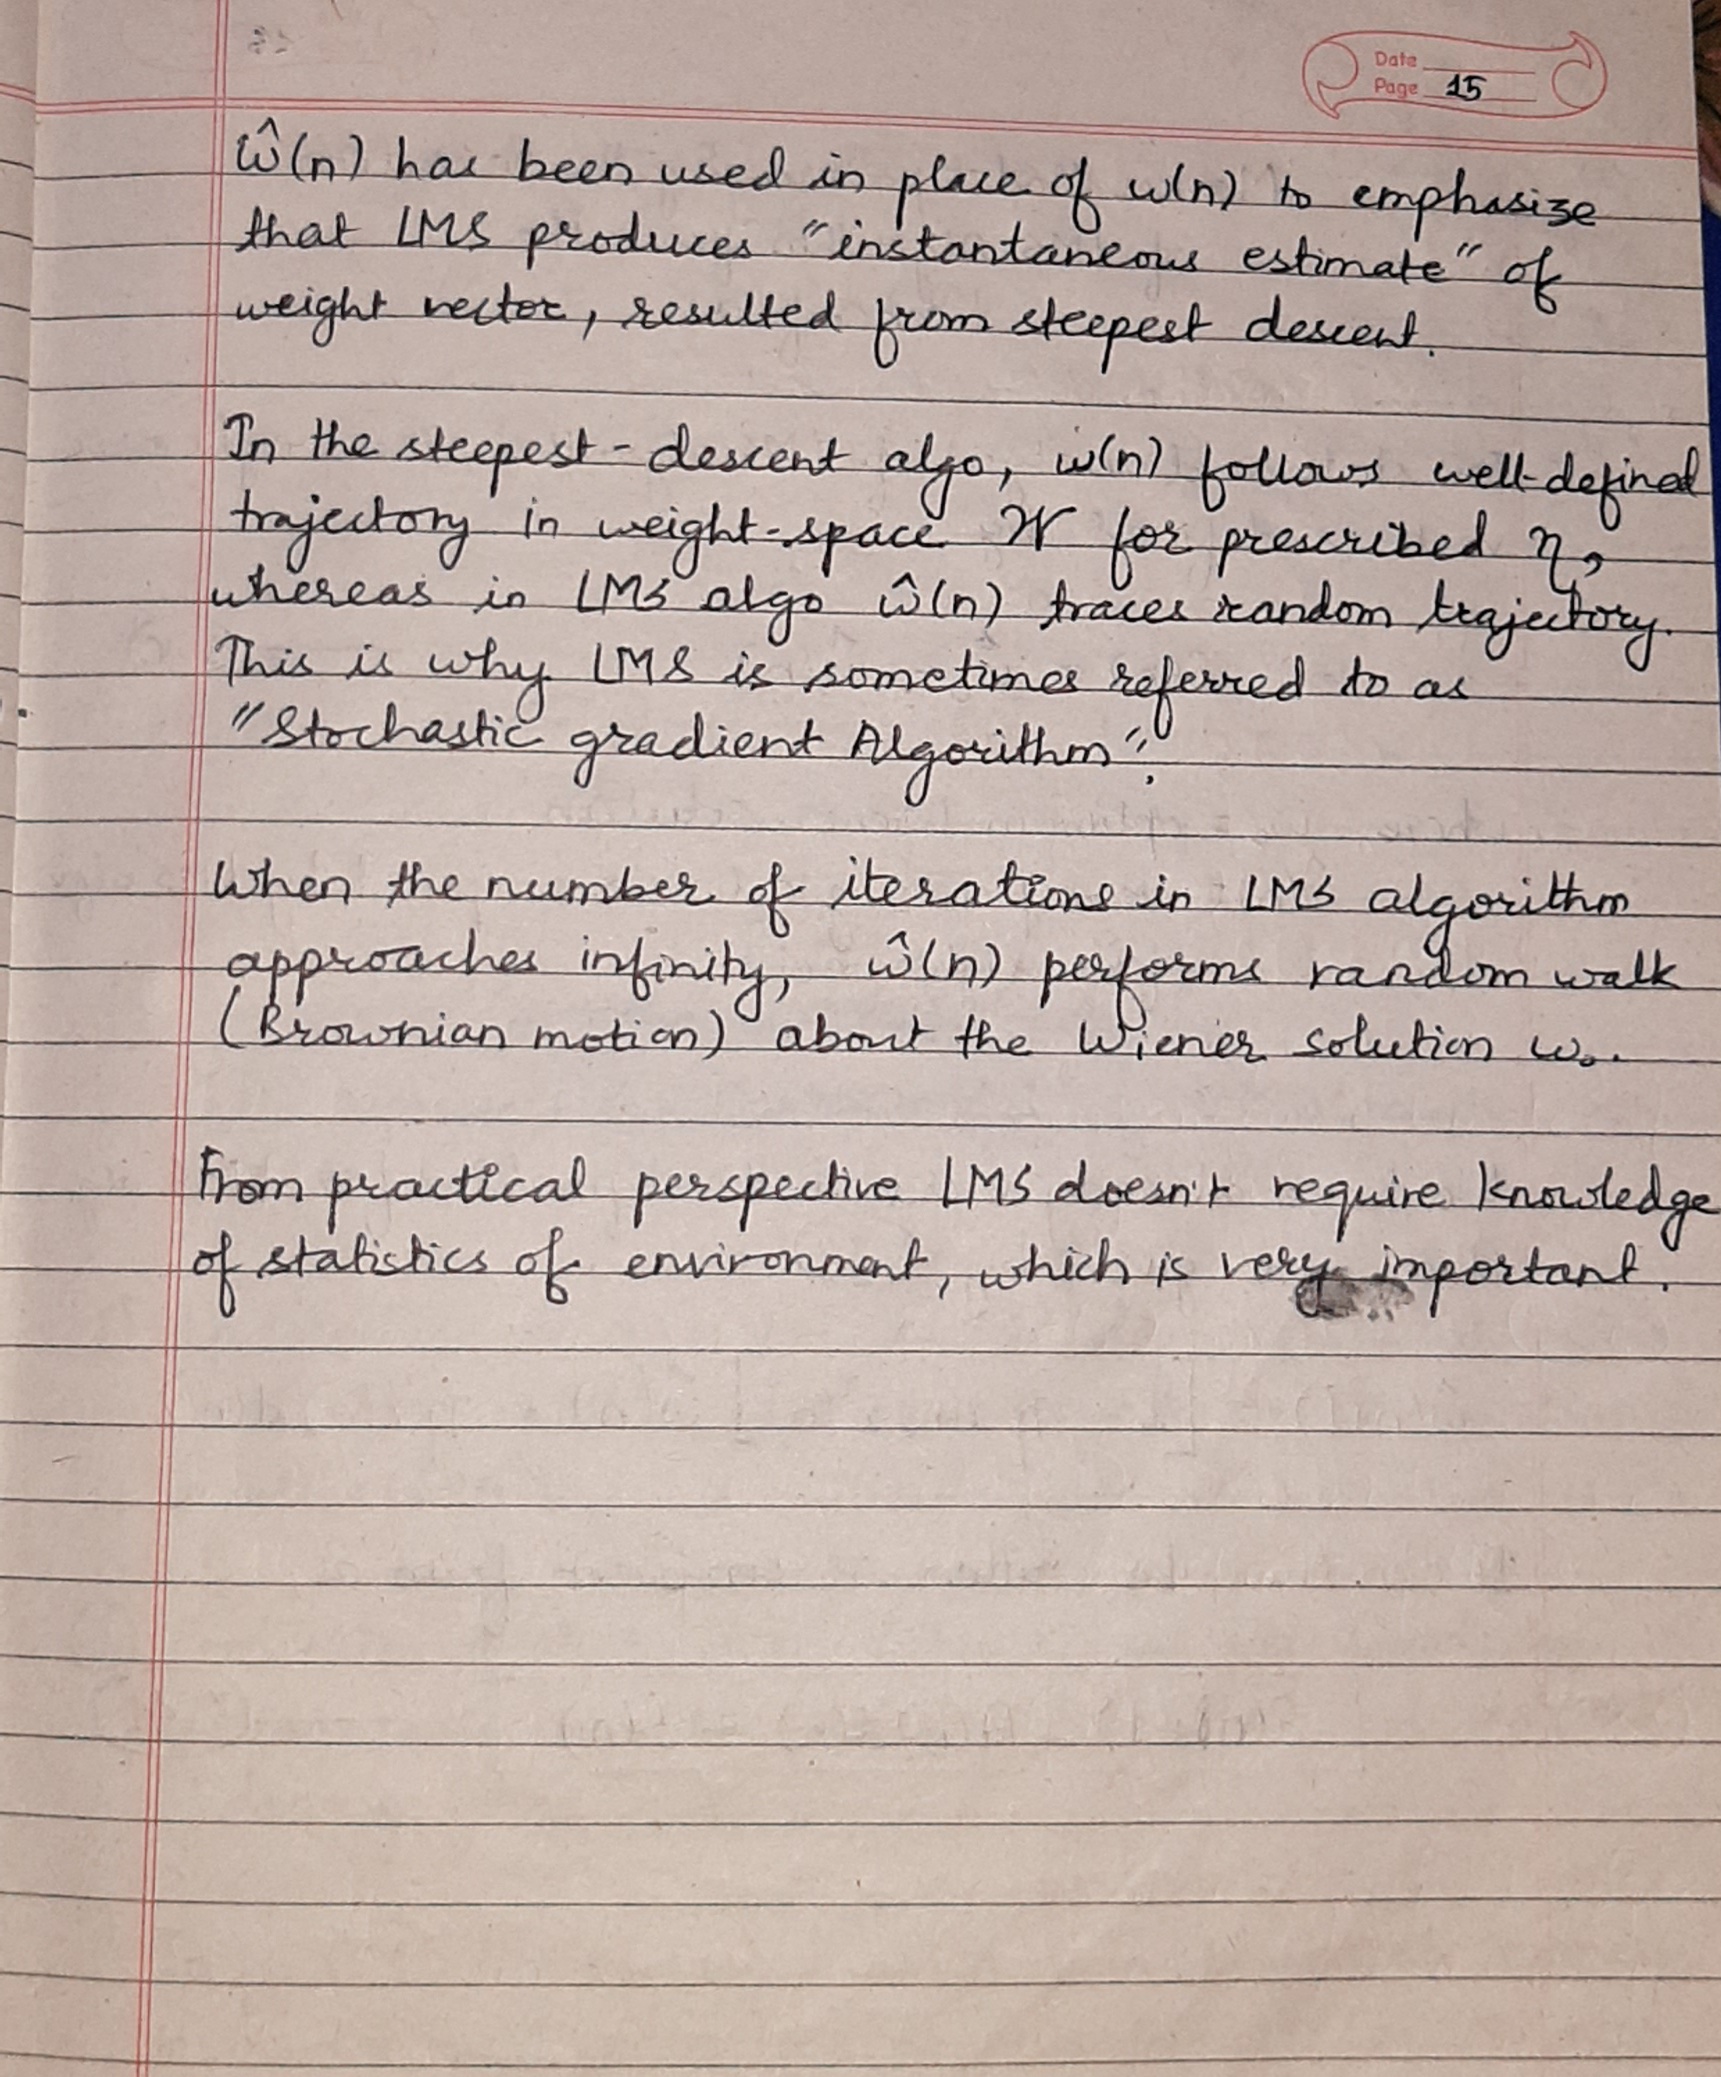 Date
Page 15
ŵ(n) has been used in place of w(n) to emphasize
that LMS produces "instantaneous estimate" of
weight vector, resulted from steepest descent.
In the steepest-descent algo, w(n) follows well-defined
trajectory in weight-space W for prescribed η,
whereas in LMS algo ŵ(n) traces random trajectory.
This is why LMS is sometimes referred to as
"Stochastic gradient Algorithm".
When the number of iterations in LMS algorithm
approaches infinity, ŵ(n) performs random walk
(Brownian motion) about the Wiener solution w₀.
From practical perspective LMS doesn't require knowledge
of statistics of environment, which is very important.